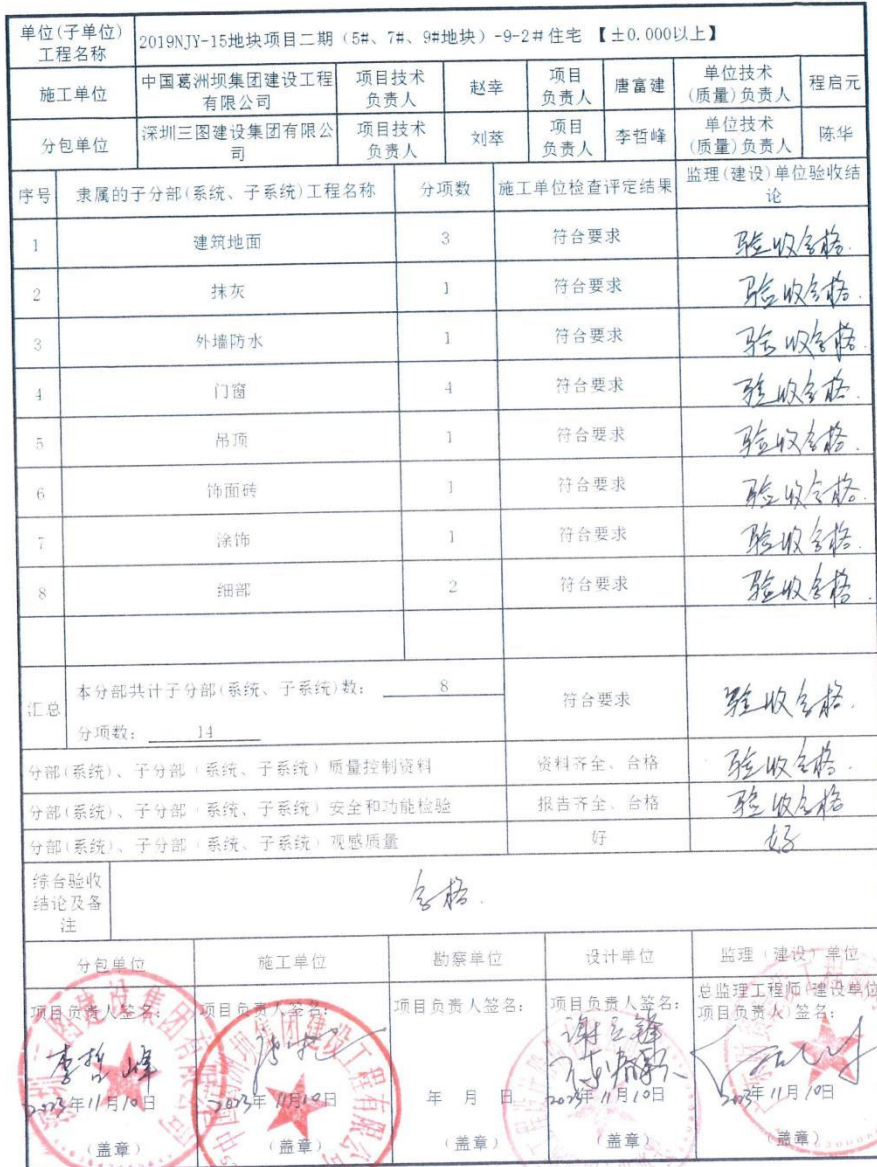 单位(子单位)
工程名称
2019NJY-15地块项目二期（5#、7#、9#地块）-9-2#住宅 【±0.000以上】
施工单位 中国葛洲坝集团建设工程有限公司 项目技术负责人 赵幸 项目负责人 唐富建 单位技术(质量)负责人 程启元
分包单位 深圳三图建设集团有限公司 项目技术负责人 刘萃 项目负责人 李哲峰 单位技术(质量)负责人 陈华
序号 隶属的子分部(系统、子系统)工程名称 分项数 施工单位检查评定结果 监理(建设)单位验收结论
1 建筑地面 3 符合要求 验收合格.
2 抹灰 1 符合要求 验收合格.
3 外墙防水 1 符合要求 验收合格.
4 门窗 4 符合要求 验收合格.
5 吊顶 1 符合要求 验收合格.
6 饰面砖 1 符合要求 验收合格.
7 涂饰 1 符合要求 验收合格.
8 细部 2 符合要求 验收合格.
汇总 本分部共计子分部(系统、子系统)数： 8
分项数： 14
符合要求 验收合格.
分部(系统)、子分部（系统、子系统）质量控制资料 资料齐全、合格 验收合格.
分部(系统)、子分部（系统、子系统）安全和功能检验 报告齐全、合格 验收合格
分部(系统)、子分部（系统、子系统）观感质量 好 好
综合验收结论及备注 合格.
分包单位 施工单位 勘察单位 设计单位 监理（建设）单位
项目负责人签名： 项目负责人签名： 项目负责人签名： 项目负责人签名： 总监理工程师(建设单位项目负责人)签名：
李哲峰
2023年11月10日 2023年11月10日 年 月 日 2023年11月10日 2023年11月10日
（盖章） （盖章） （盖章） （盖章） （盖章）